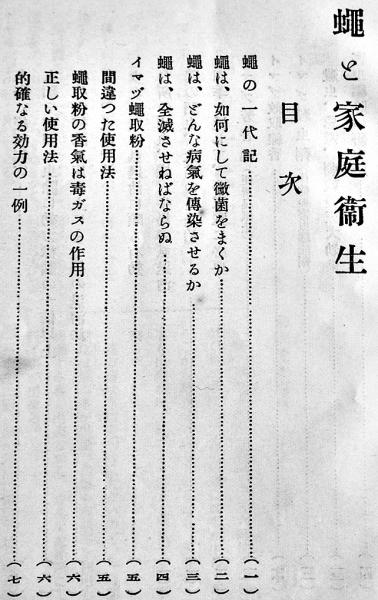 蠅と家庭衞生
目次
蠅の一代記……(一)
蠅は、如何にして黴菌をまくか……(二)
蠅は、どんな病氣を傳染させるか……(三)
蠅は、全滅させねばならぬ……(四)
イマヅ蠅取粉……(五)
間違つた使用法……(五)
蠅取粉の香氣は毒ガスの作用……(六)
正しい使用法……(六)
的確なる効力の一例……(七)